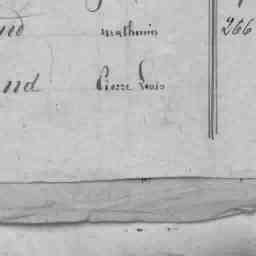 nd mathurin 266
nd Pierre Louis